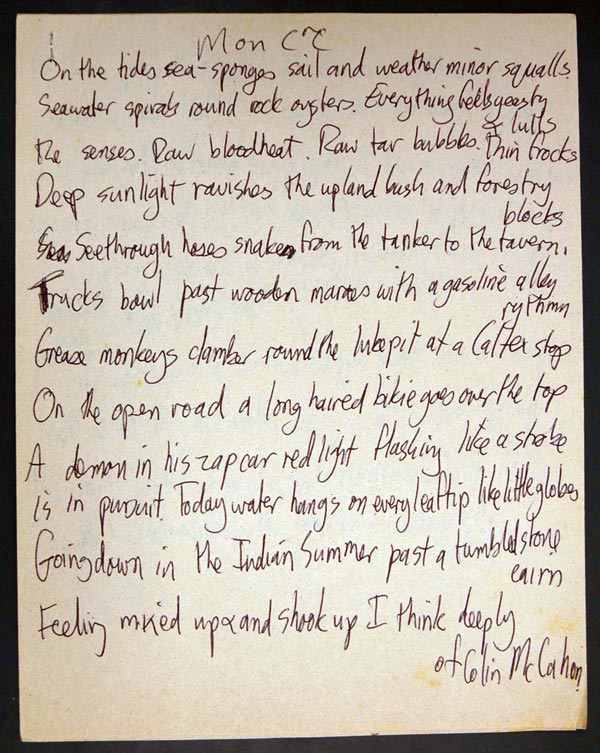 Mon
On the tides sea-sponges sail and weather minor squalls.
Seawater spirals round rock oysters. Everything feels yeasty
& lulls
the senses. Raw bloodheat. Raw tar bubbles. Thin trocks
Deep sunlight ravishes the upland bush and forestry
blocks
Seethrough hoses snake from the tanker to the tavern.
Trucks bowl past wooden maraes with a gasoline alley
rythmn
Grease monkeys clamber round the lubepit at a Caltex stop
On the open road a long haired bikie goes over the top
A demon in his zapcar red light flashing like a strobe
is in pursuit. Today water hangs on every leaftip like little globes
Going down in the Indian Summer past a tumbled stone
cairn
Feeling mixed up and shook up I think deeply
of Colin McCahon